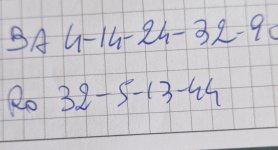 BA 4-14-24-32-90
Ro 32-5-13-44